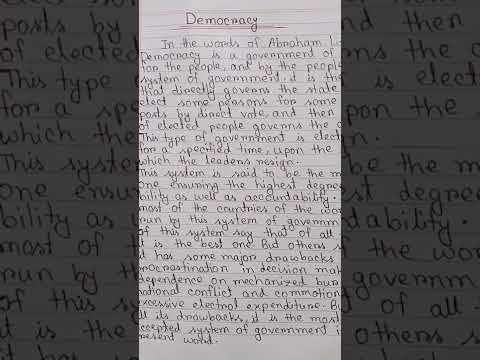 Democracy
In the words of Abraham Li
Democracy is a government of
for the people, and by the people
system of government. it is the
that directly governs the state
elect some persons for some
posts by direct vote, and then
of elected people governs the c
This type of government is elect
for a specified time, upon the
which the leaders resign.
This system is said to be the m
one ensuring the highest degree
bility as well as accountability.
most of the countries of the wor
run by this system of governm
of this system say that of all
it is the best one. But others s
it has some major drawbacks
procrastination in decision mak
dependence on mechanized bur
national conflict and commotion
excessive electoral expenditure. Bu
all its drawbacks, it is the most
accepted system of government i
present world.